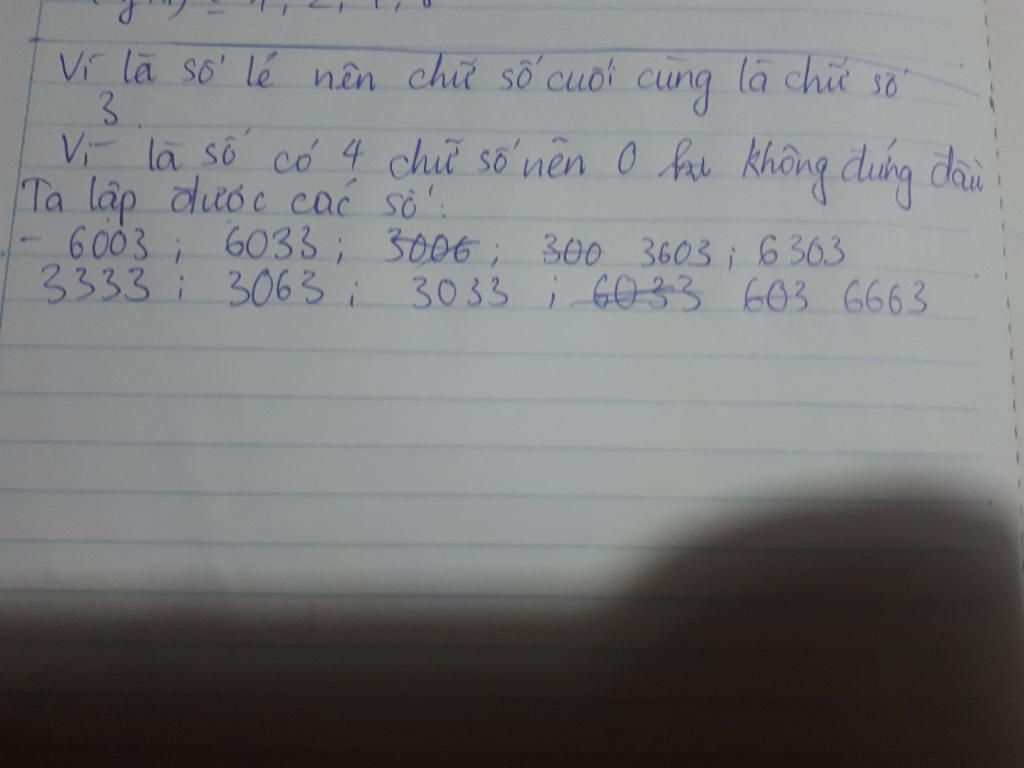 Vì là số lẻ nên chữ số cuối cùng là chữ số
3.
Vì là số có 4 chữ số nên 0 không đứng đầu
Ta lập được các số:
- 6003; 6033; 3006; 300 3603; 6303
3333; 3063; 3033; 6033 603 6663